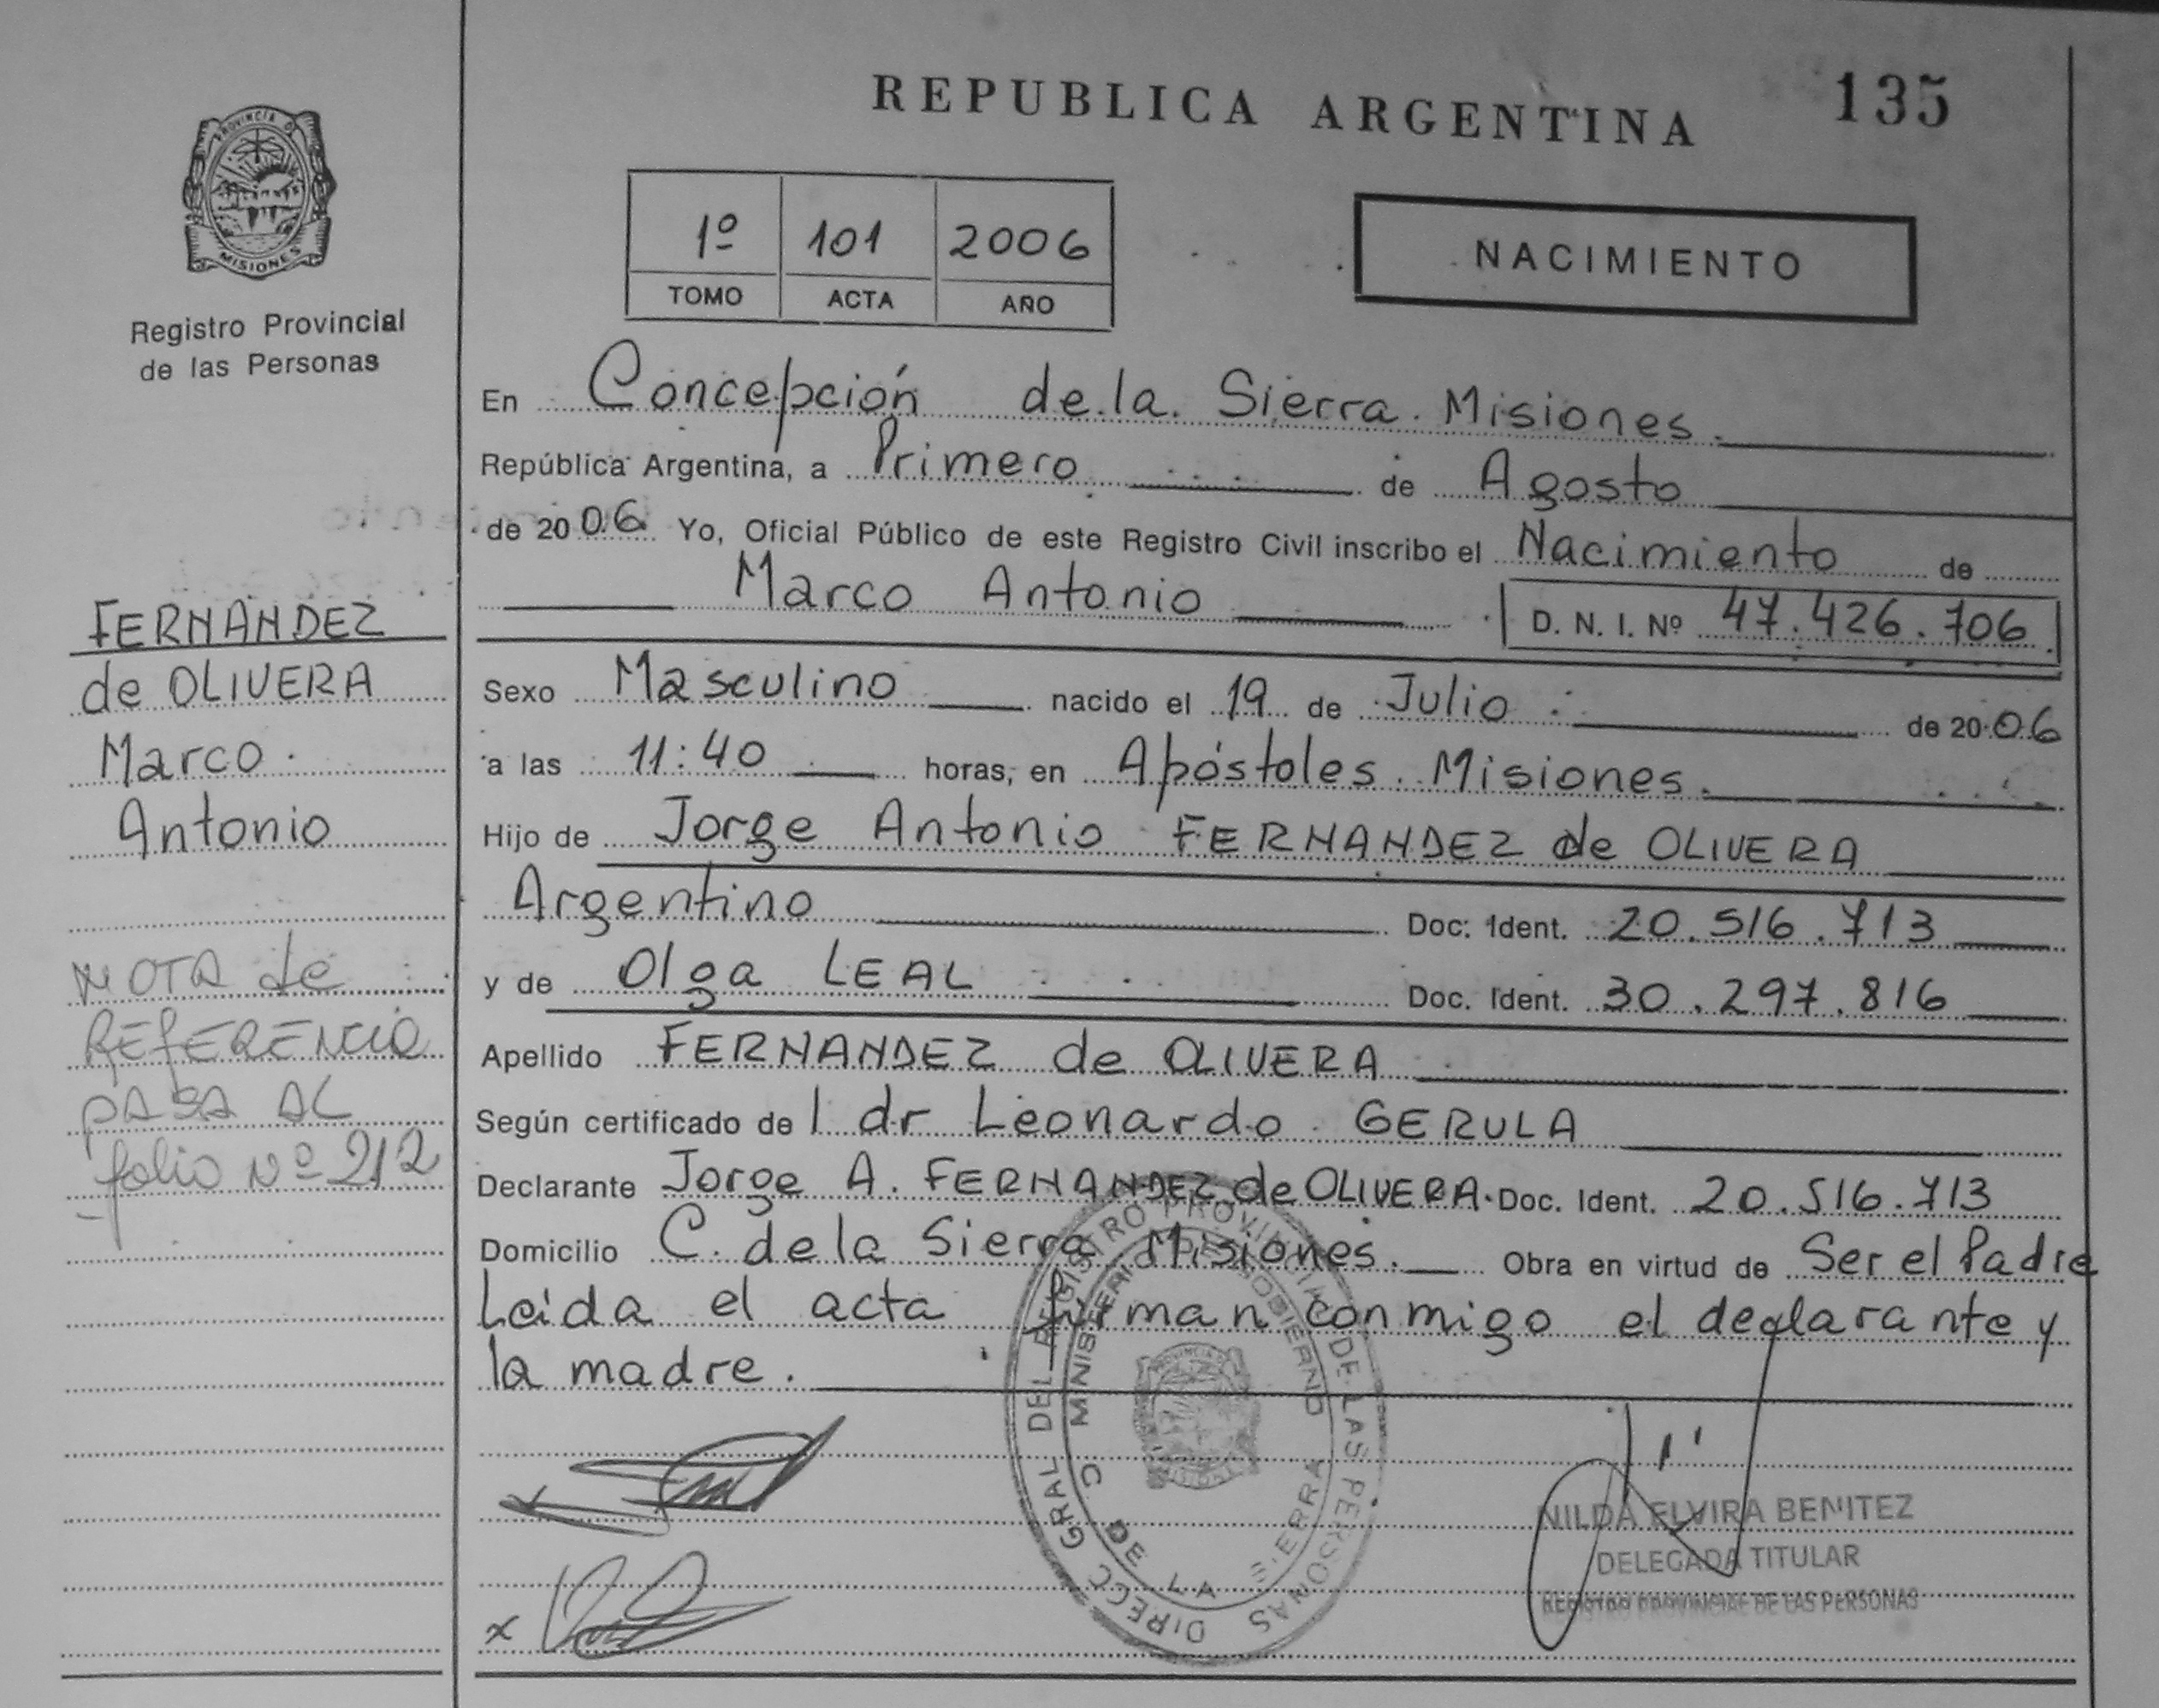 REPUBLICA ARGENTINA 135
PROVINCIA D
MISIONES
Registro Provincial
de las Personas
1º 101 2006
TOMO ACTA AÑO
NACIMIENTO
En Concepción de la Sierra. Misiones.
República Argentina, a Primero de Agosto
de 2006 Yo, Oficial Público de este Registro Civil inscribo el Nacimiento de
Marco Antonio D. N. I. Nº 47.426.706
Sexo Masculino nacido el 19 de Julio de 2006
a las 11:40 horas, en Apóstoles. Misiones.
Hijo de Jorge Antonio FERNANDEZ de OLIVERA
Argentino Doc. Ident. 20.516.713
y de Olga LEAL Doc. Ident. 30.297.816
Apellido FERNANDEZ de OLIVERA
Según certificado de l dr Leonardo GERULA
Declarante Jorge A. FERNANDEZ de OLIVERA. Doc. Ident. 20.516.713
Domicilio C. de la Sierra Misiones. Obra en virtud de Ser el Padre
Leida el acta firman conmigo el declarante y
la madre.
FERNANDEZ
de OLIVERA
Marco
Antonio
NOTA de
REFERENCIA
PASA AL
folio Nº 212
DIRECC GRAL DEL REGISTRO PROVINCIAL DE LAS PERSONAS
MINISTERIO DE GOBIERNO
C DE LA SIERRA
NILDA ELVIRA BENITEZ
DELEGADA TITULAR
REGISTRO PROVINCIAL DE LAS PERSONAS